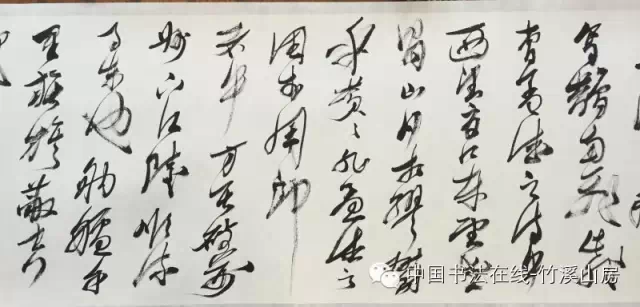 烏鵲南飛此非
曹孟德之詩乎
西望夏口東望武
昌山川相繆鬱
乎蒼〻此非孟德之
困於周郎
者乎方其破荊
州下江陵順流
而東也舳艫千
里旌旗蔽空
中国书法在线-竹溪山房